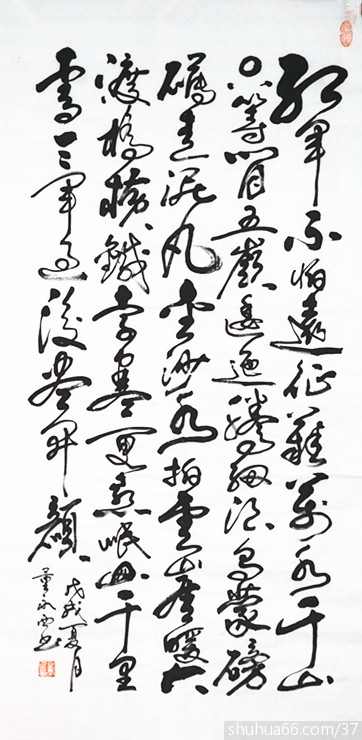 紅軍不怕遠征難萬水千山
只等閒五嶺逶迤騰細浪烏蒙磅
礴走泥丸金沙水拍雲崖暖大
渡橋橫鐵索寒更喜岷山千里
雪三軍過後盡開顏
戊戌夏月
shuhua66.com/37